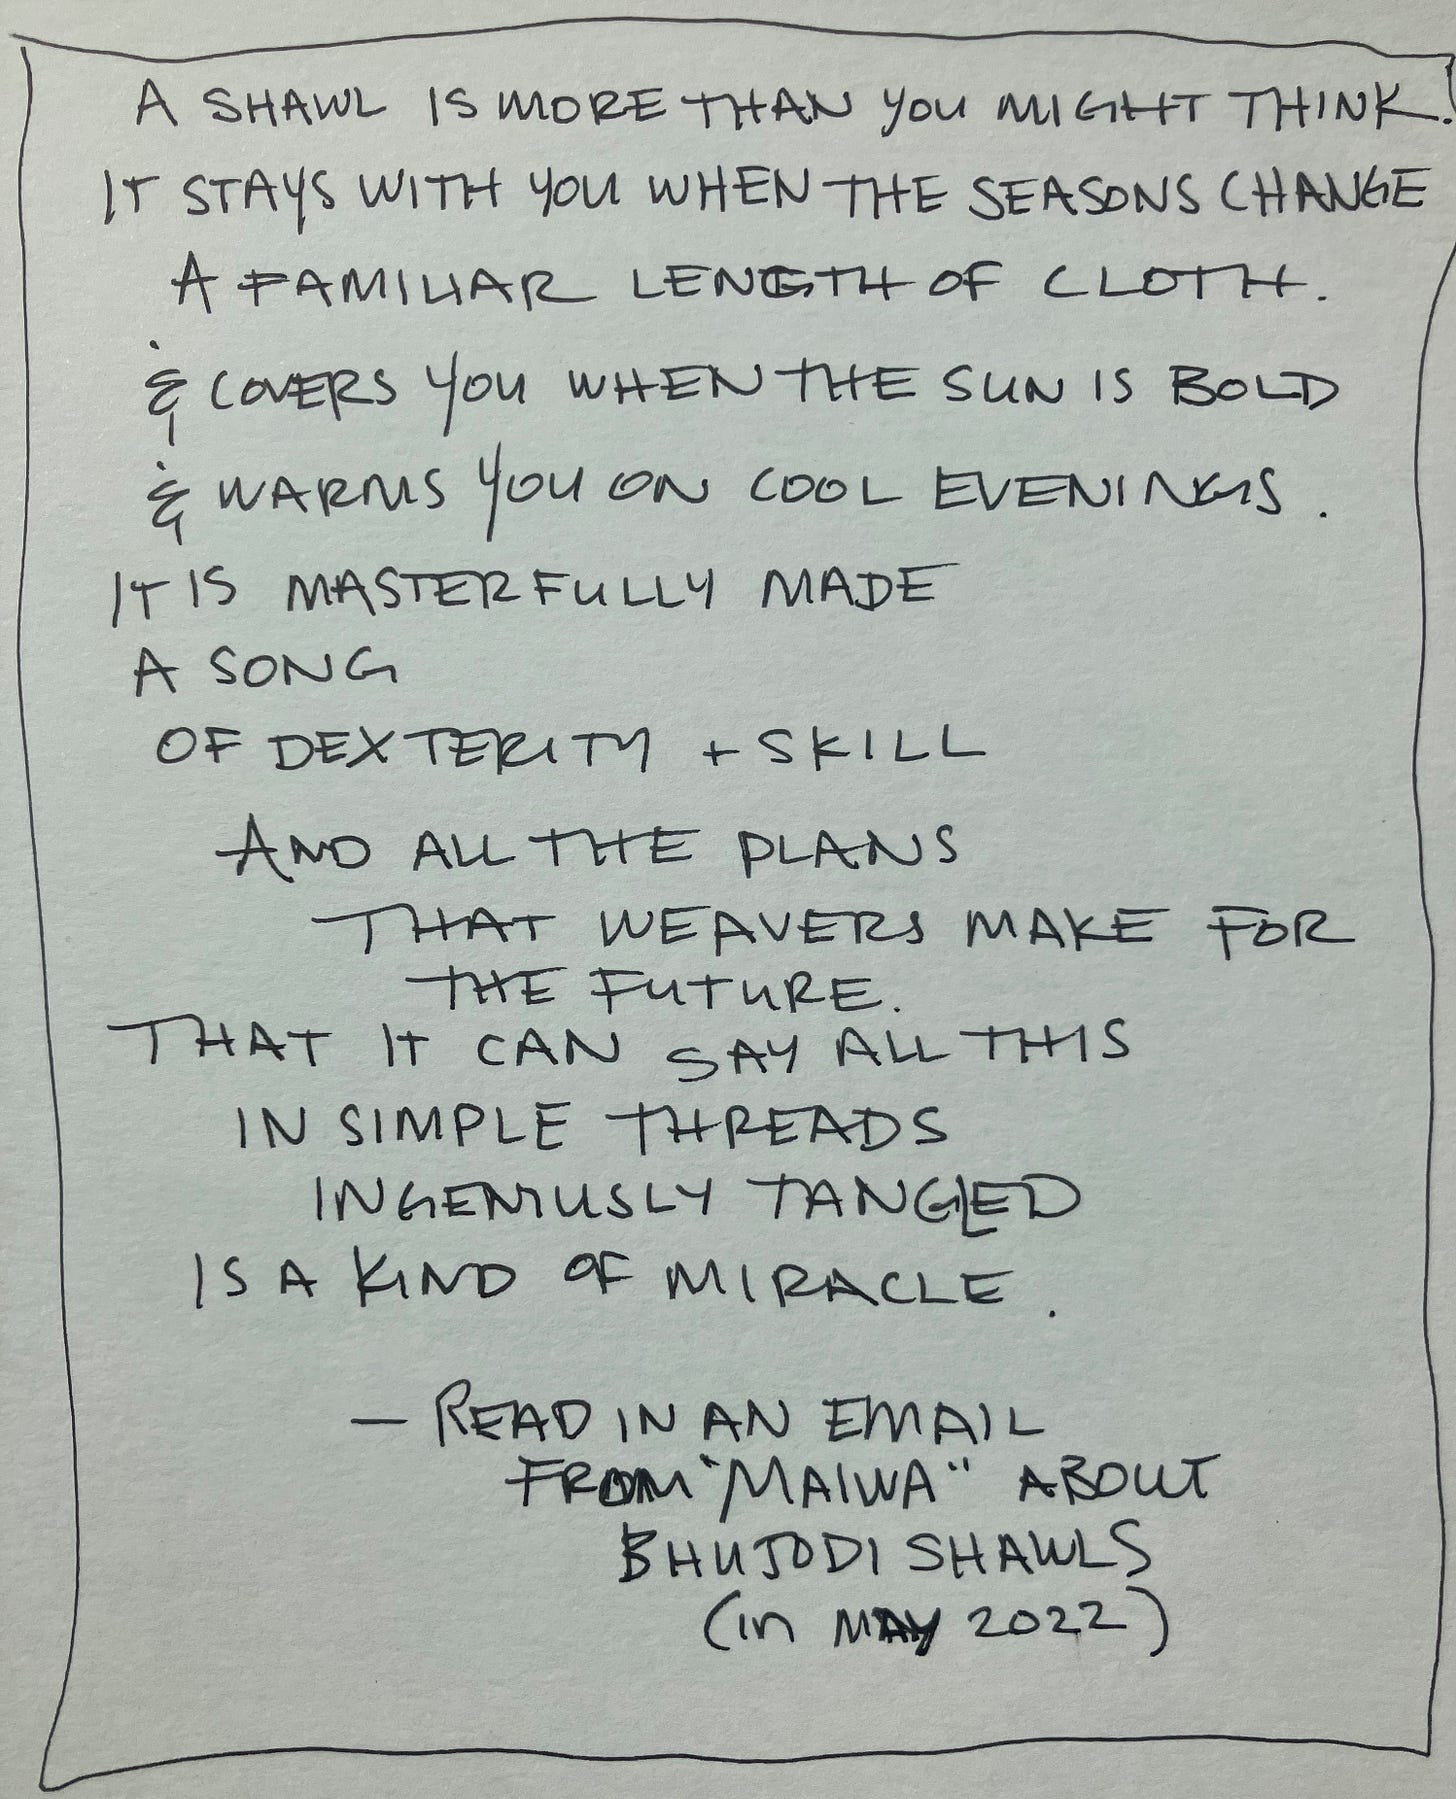 A SHAWL IS MORE THAN YOU MIGHT THINK.
IT STAYS WITH YOU WHEN THE SEASONS CHANGE
A FAMILIAR LENGTH OF CLOTH.
& COVERS YOU WHEN THE SUN IS BOLD
& WARMS YOU ON COOL EVENINGS.
IT IS MASTERFULLY MADE
A SONG
OF DEXTERITY + SKILL
AND ALL THE PLANS
THAT WEAVERS MAKE FOR
THE FUTURE.
THAT IT CAN SAY ALL THIS
IN SIMPLE THREADS
INGENIUSLY TANGLED
IS A KIND OF MIRACLE.
— READ IN AN EMAIL
FROM "MAIWA" ABOUT
BHUJODI SHAWLS
(in MAY 2022)